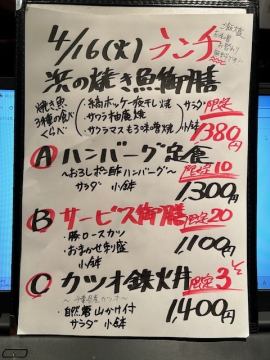 4/16(火) ランチ
ご飯大盛
お味噌汁
お替わり
無料です
浜の焼き魚御膳
焼き魚
3種の食べ
くらべ
・縞ホッケ夜干し焼
・サワラ柚庵焼
・サワラマスもろ味噌焼
サラダ
小鉢
限定
1380円
A ハンバーグ定食
〜おろしポン酢ハンバーグ〜
限定10
サラダ 小鉢
1,300円
B サービス御膳
限定20
・豚ロースカツ
・おまかせ刺盛
・小鉢
1,100円
C カツオ鉄火丼
限定3
・自然薯山かけ付
サラダ 小鉢
1,400円